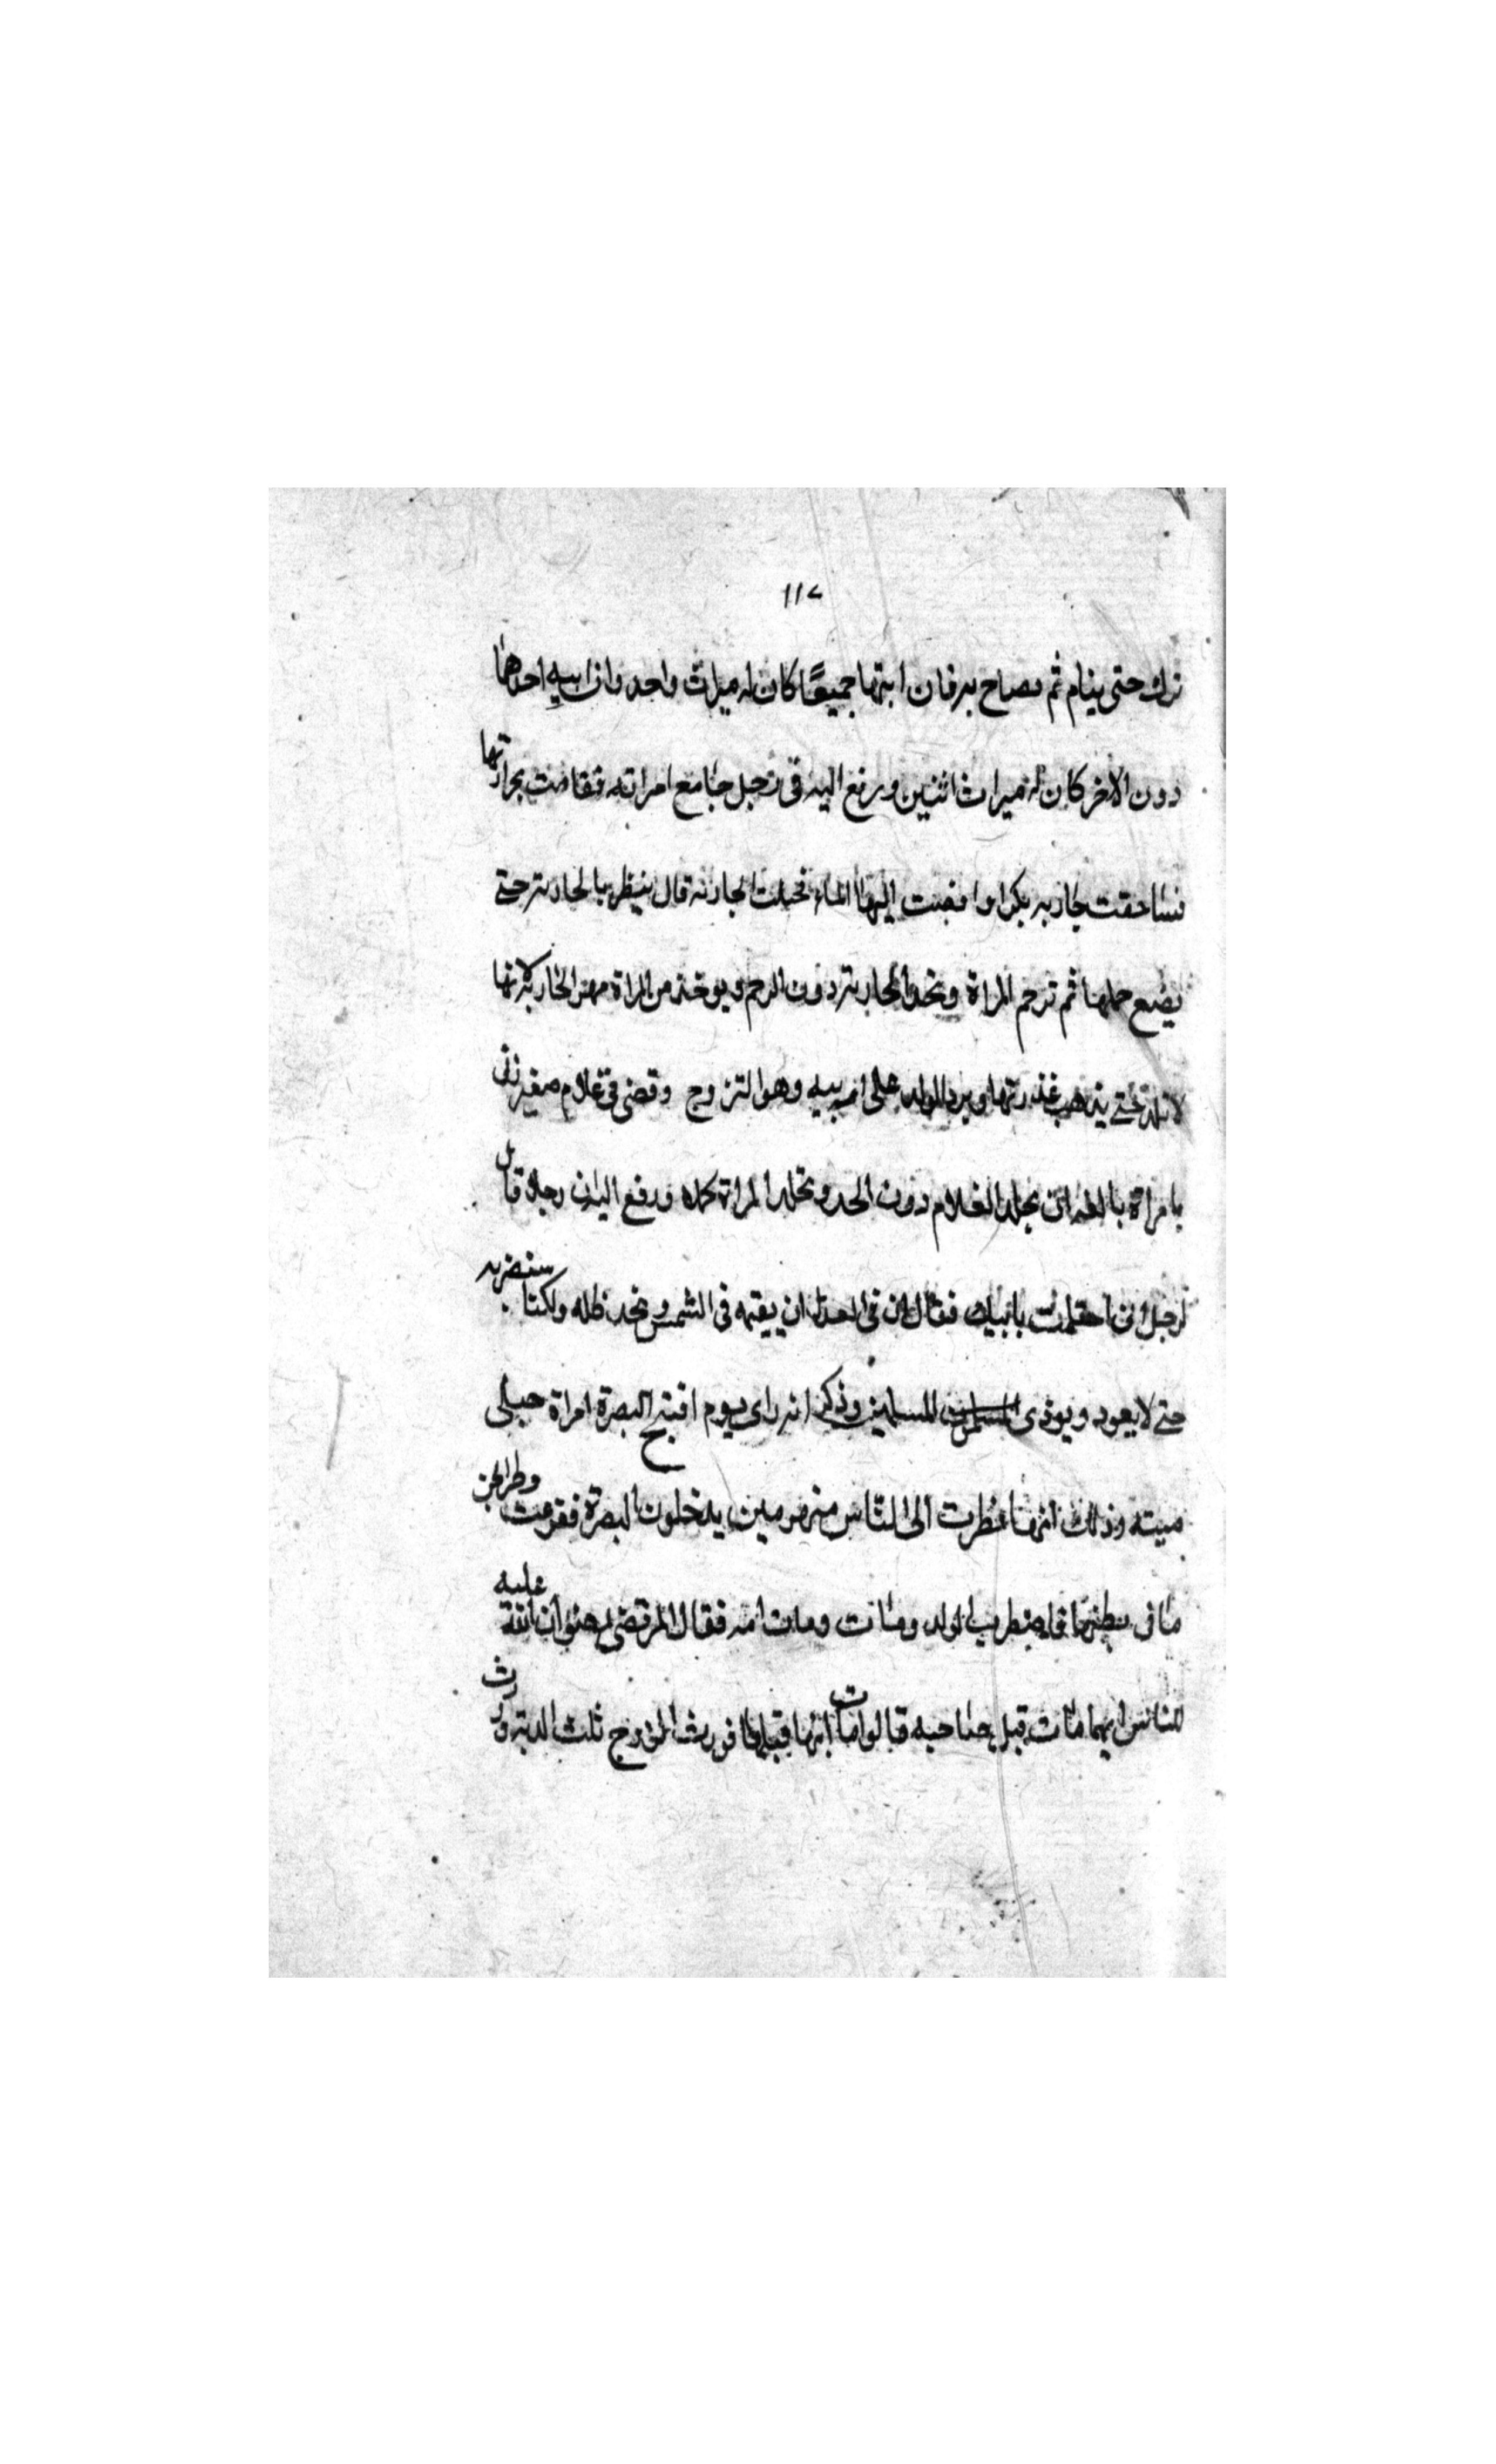 ١١٧
ترك حتى ينام ثم يصاح به فان انتبها جميعًا كان له ميراث واحد وان انتبه احدهما
دون الاخر كان له ميراث اثنين ورفع اليه فى رجل جامع امراته فقامت بحرارتها
فساحقت جاريه بكرا وافضت اليها الماء فحملت الجاريه قال ينتظر بالجاريه حتى
تضع حملها ثم ترجم المراة وتحد الجارية دون الرجم ويوخذ من المراة مهر الجاريه لانها
لا تلد حتى يذهب عذرتها ويرد الولد على ابيه وهو الزوج وقضى فى غلام صغير زنى
بامراة بالغه ان يجلد الغلام دون الحد وتجلد المراة كمله ورفع اليه ان رجلا قال
لرجل انى احتلمت بامك فقال ان فى العدل ان يقيمه فى الشمس ونحد ظله ولكنا سنضربه
حتى لا يعود ويوذى المسلمين وذكر انه راى يوم افتتح البصرة امراة حبلى
ميته وذلك انها نظرت الى الناس منهزمين يدخلون البصرة ففزعت
ما فى بطنها فاضطرب الولد ومات وماتت امه فقال المرتضى رضوان الله عليه
للناس ايهما مات قبل صاحبه قالوا مات ابنها قبلها فورث الزوج ثلث الدية وورث